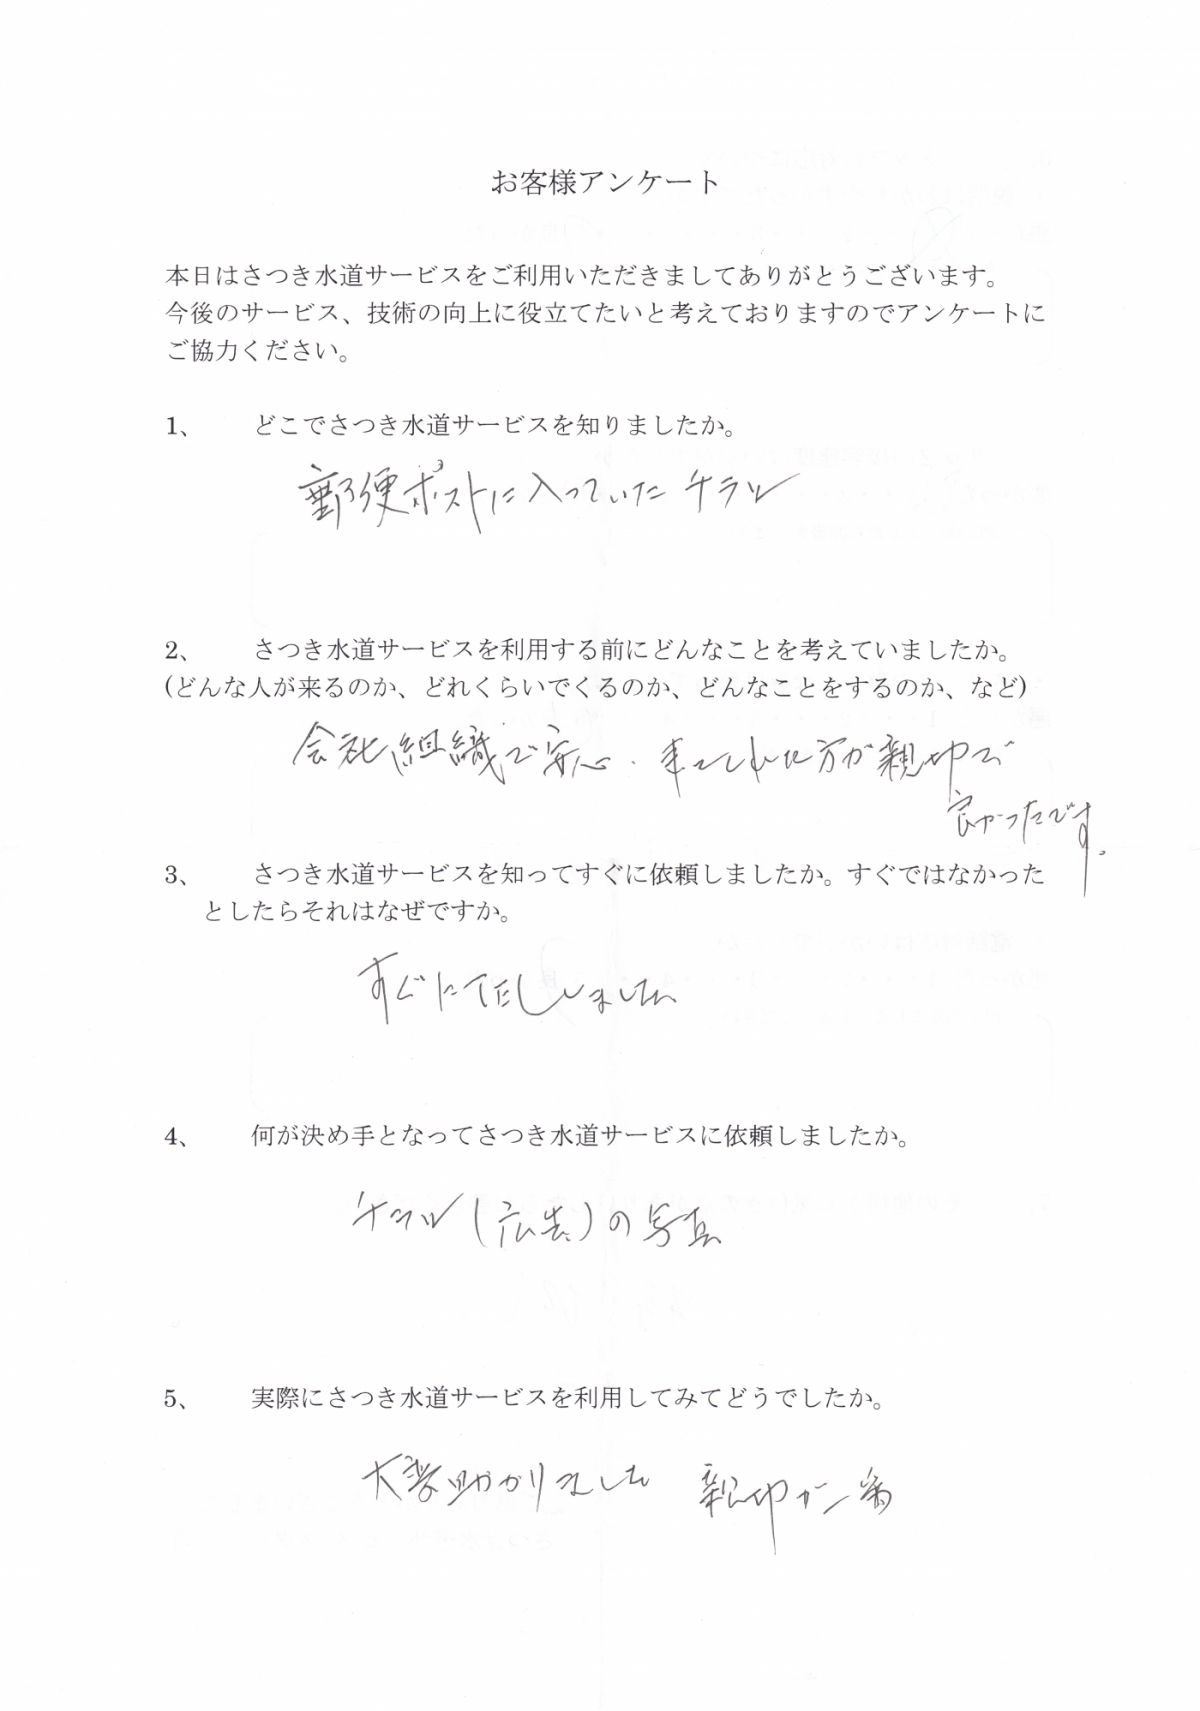 お客様アンケート
本日はさつき水道サービスをご利用いただきましてありがとうございます。
今後のサービス、技術の向上に役立てたいと考えておりますのでアンケートに
ご協力ください。
1、 どこでさつき水道サービスを知りましたか。
郵便ポストに入っていたチラシ
2、 さつき水道サービスを利用する前にどんなことを考えていましたか。
(どんな人が来るのか、どれくらいでくるのか、どんなことをするのか、など)
会社組織で安心・来てくれた方が親切で
良かったです。
3、 さつき水道サービスを知ってすぐに依頼しましたか。すぐではなかった
としたらそれはなぜですか。
すぐに しました
4、 何が決め手となってさつき水道サービスに依頼しましたか。
チラシ(広告)の写真
5、 実際にさつき水道サービスを利用してみてどうでしたか。
大変助かりました 親切が一番